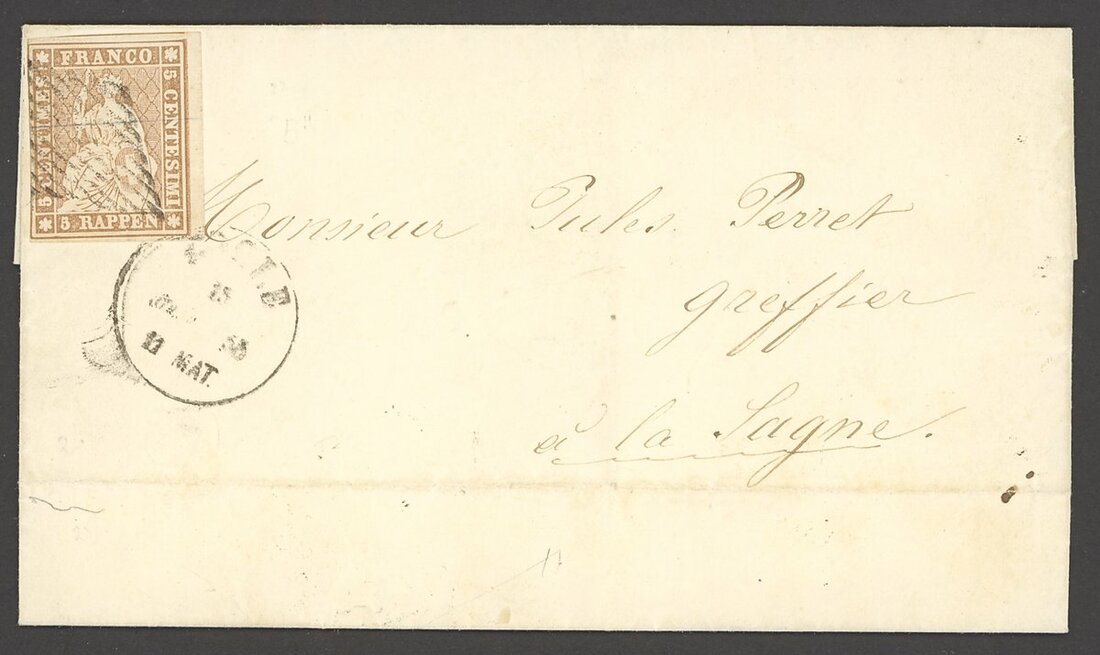 FRANCO
5 CENTIMES
5 CENTESIMI
5 RAPPEN
Monsieur Jules Perret
greffier
à la Sagne.
18
11 MAT.